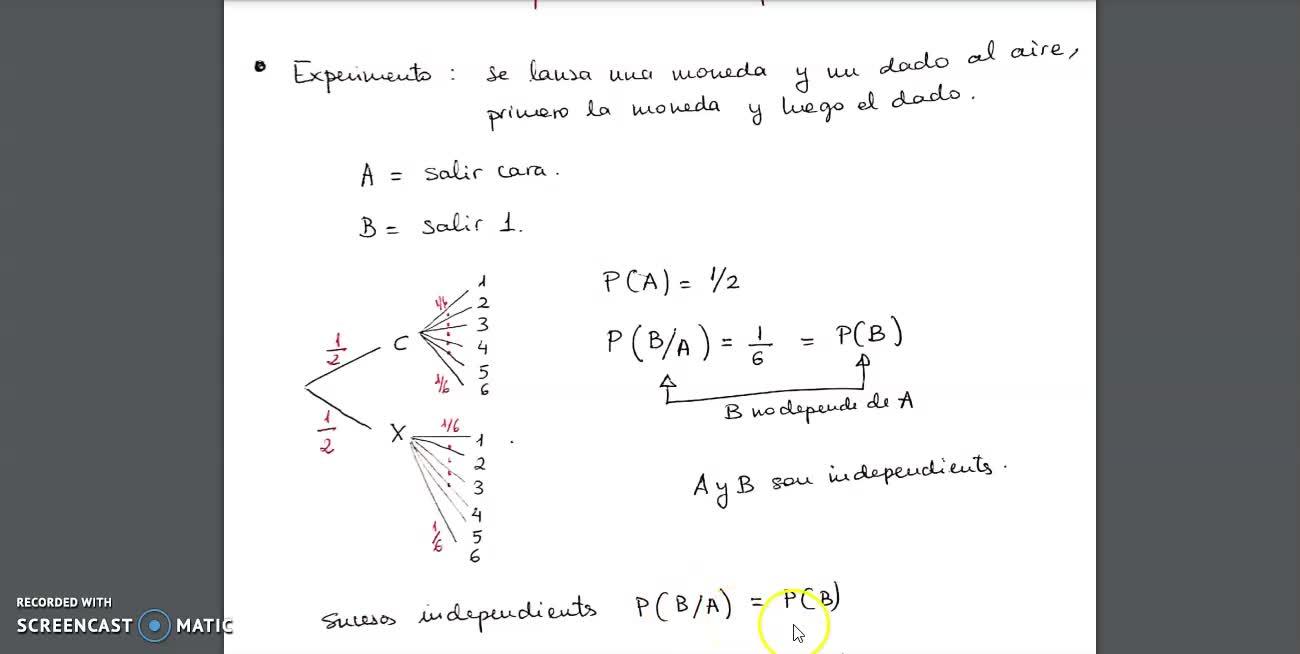 Experimento : se lansa una moneda y un dado al aire,
primero la moneda y luego el dado.
A = salir cara.
B = salir 1.
P(A) = 1/2
P(B/A) = 1/6 = P(B)
B no depende de A
A y B son independients.
1/2
C
1/6
1
2
3
4
5
6
1/6
1/2
X
1/6
1
2
3
4
5
6
1/6
Sucesos independients P(B/A) = P(B)
RECORDED WITH
SCREENCAST MATIC